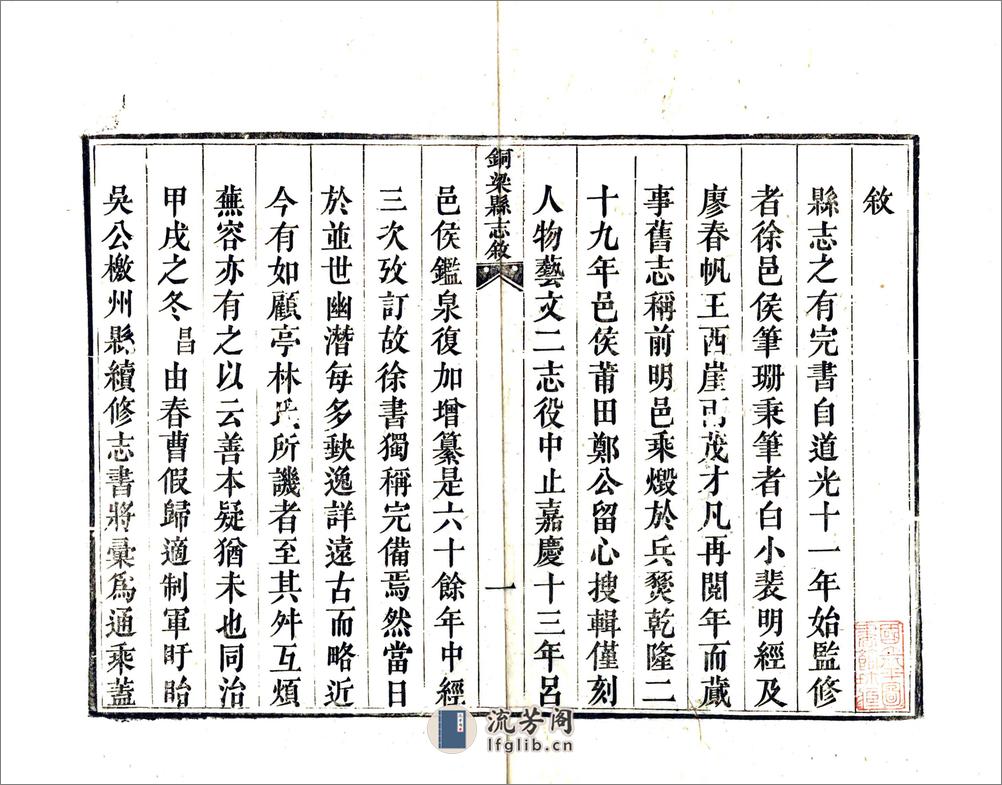 敘
縣志之有完書自道光十一年始監修
者徐邑侯筆珊秉筆者白小裴明經及
廖春帆王西崖茂才凡再閱年而蕆
事舊志稱前明邑乘燬於兵燹乾隆二
十九年邑侯莆田鄭公留心搜輯僅刻
人物藝文二志役中止嘉慶十三年呂
銅梁縣志敘
一
邑侯鑑泉復加增纂是六十餘年中經
三次攷訂故徐書獨稱完備焉然當日
於並世幽潛每多缺逸詳遠古而略近
今有如顧亭林氏所譏者至其舛互煩
蕪容亦有之以云善本疑猶未也同治
甲戌之冬昌由春曹假歸適制軍盱眙
吳公檄州縣續修志書將彙為通乘蓋
流芳阁
lfglib.cn